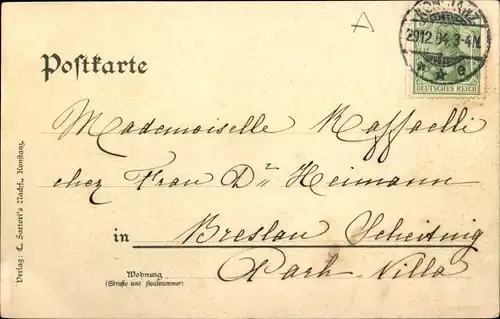 KONSTANZ
29.12.04. 3-4 N.
* * c
DEUTSCHES REICH
Postkarte
Mademoiselle Raffaelli
chez Frau Dr. Heimann
in Breslau Scheitnig
Park-Villa
Wohnung
(Straße und Hausnummer)
Verlag: C. Sartori's Nachf., Konstanz.